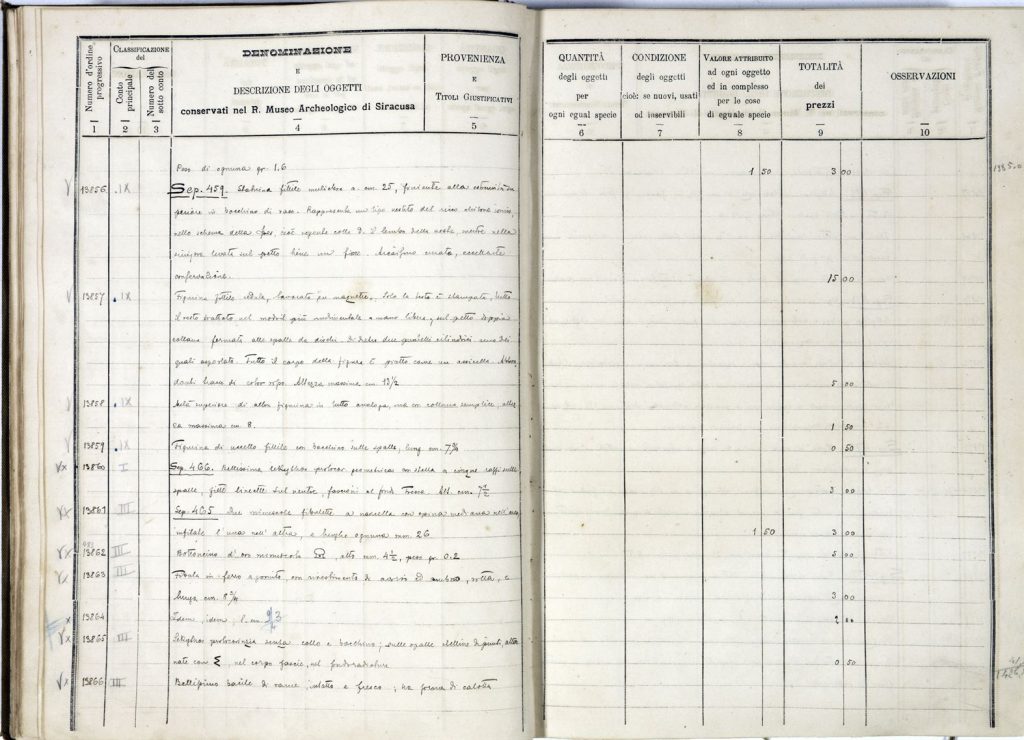 Numero d'ordine progressivo
CLASSIFICAZIONE del
Conto principale
Numero del sotto conto
DENOMINAZIONE
E
DESCRIZIONE DEGLI OGGETTI
conservati nel R. Museo Archeologico di Siracusa
PROVENIENZA
E
TITOLI GIUSTIFICATIVI
1 2 3 4 5
Pess. di ognuna gr. 1.6
13856 IX Sep. 459. Statuina fittile muliebre a. cm. 25,
periore in bocchino di vaso. Rappresenta un tipo vestito del ricco chitone ionico,
nello schema della Spes, cioè regente colla d. il lembo della veste, mentre nella
sinistra levata sul petto tiene un fiore. eccellente
conservazione.
13857 IX Figurina fittile seduta, lavorata Solo la testa è stampata, tutto
il resto trattato nel modo il più rudimentale a mano libera; sul petto doppia
collana fermata alle spalle da dischi. di dietro due
quali asportato. Tutto il corpo della figura è piatto come un assicella.
danti traccie di color roseo. Altezza massima cm. 13½
13858 IX Metà superiore di altra figurina in tutto analoga, ma con collana semplice, altez
za massima cm. 8.
13859 IX Figurina di uccello fittile con bocchino sulle spalle, lung. cm. 7
13860 I Sep. 466. Bellissima lekythos protocor. geometrica con stella a cinque raggi sulle
spalle, ventre, fascioni al fondo. Fresco. Alt. cm. 7½
13861 III Sep. 465 Due minuscole fibulette a navicella con spina
infilate l'una nell'altra, e lunghe ognuna mm. 26
13862 III Bottoncino d'oro minuscolo alto mm. 4½, peso gr. 0.2
13863 III Fibula in ferro con rivestimento di avorio ed ambra, rotta,
lunga cm. 8
13864 Idem, idem, l. cm.
13865 III Lekythos protocorinzia senza collo e bocchino; sulle spalle stelline di punti, alter
nate con Σ, nel corpo fascie, nel fondo radiature
13866 III Bellissimo bacile di rame, intatto e fresco; ha forma di calotta
QUANTITÀ
degli oggetti
per
ogni egual specie
6
CONDIZIONE
degli oggetti
cioè: se nuovi, usati
od inservibili
7
VALORE ATTRIBUITO
ad ogni oggetto
ed in complesso
per le cose
di eguale specie
8
TOTALITÀ
dei
prezzi
9
OSSERVAZIONI
10
1 50 3 00
15 00
5 00
1 50
0 50
3 00
1 50 3 00
5 00
3 00
2 00
0 50